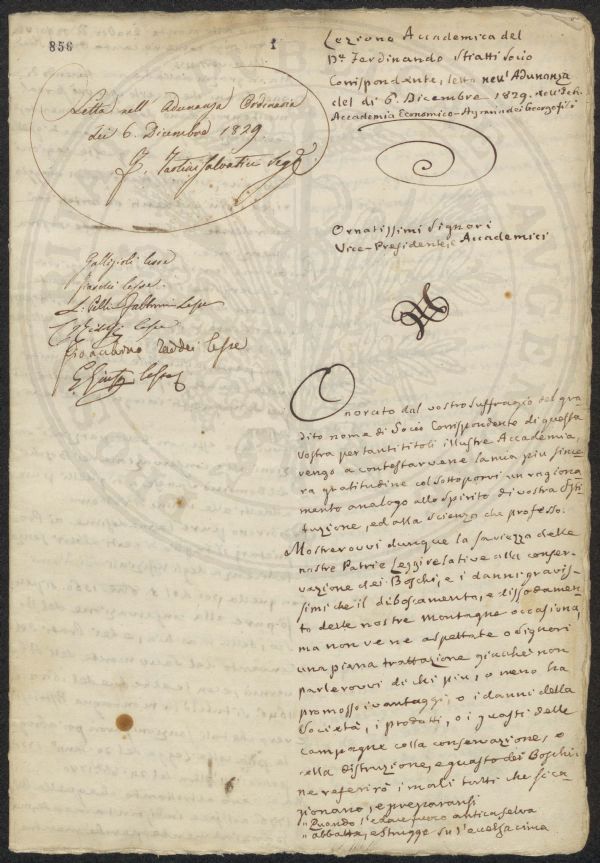 856
1
Letta nell'Adunanza Ordinaria
del 6. Dicembre 1829.
Lezione Accademica del
Dr. Ferdinando Socio
Corrispondente, letta nell'Adunanza
del di 6. Dicembre 1829. nell'
Accademia Economico-Agraria dei Georgofili
Ornatissimi Signori
Vice-Presidente, e Accademici
Gallizioli lesse
lesse
lesse
Gioacchino Taddei lesse
G. Giusti lesse
Onorato dal vostro suffragio del gra
dito nome di Socio Corrispondente di questa
vostra per tanti titoli illustre Accademia,
vengo a contestarvene la mia piu since
ra gratitudine col sottoporvi un ragiona
mento analogo allo spirito di vostra Isti
tuzione, ed alla scienza che professo.
Mostrerovvi dunque la saviezza delle
nostre Patrie Leggi relative alla conser
vazione dei Boschi, e i danni gravis-
simi che il diboscamento, e dissodamen
to delle nostre montagne occasiona,
ma non vene aspettate o Signori
una piana trattazione giacche non
parlerovvi di chi piu, o meno ha
promosso i vantaggi, o i danni della
Società, i prodotti, o i guasti delle
campagne colla conservazione, o
colla distruzione, e guasto dei Boschi
ne referirò i mali tutti che si ca
gionano, e preparansi
„ Quando l' antica selva
„ abbatta, e strugge cima